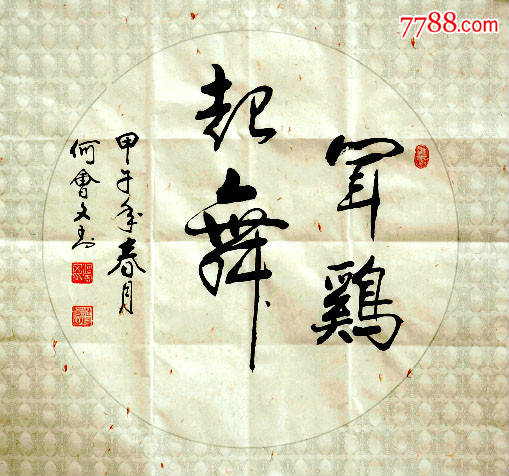 7788.com
聞鷄
起舞
甲午年春月
何會文書